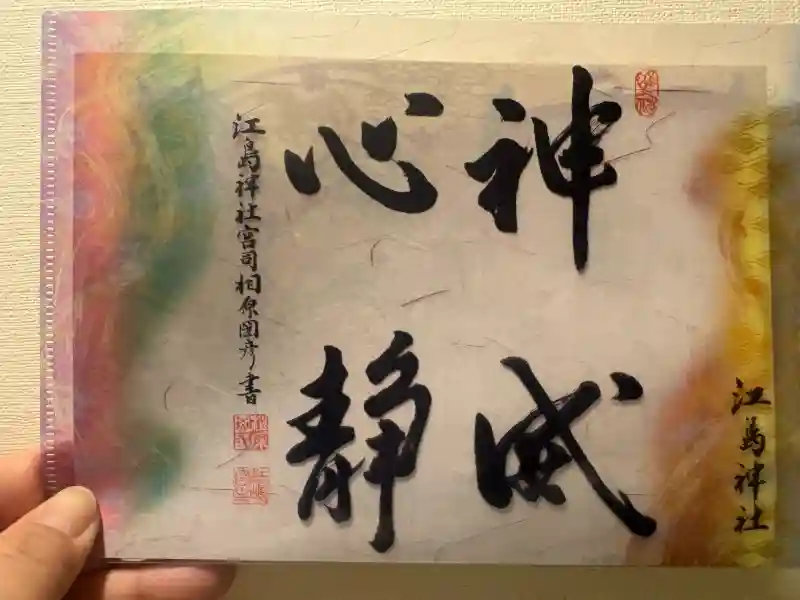 江島神社
神威
心静
江島神社宮司相原圀彦書